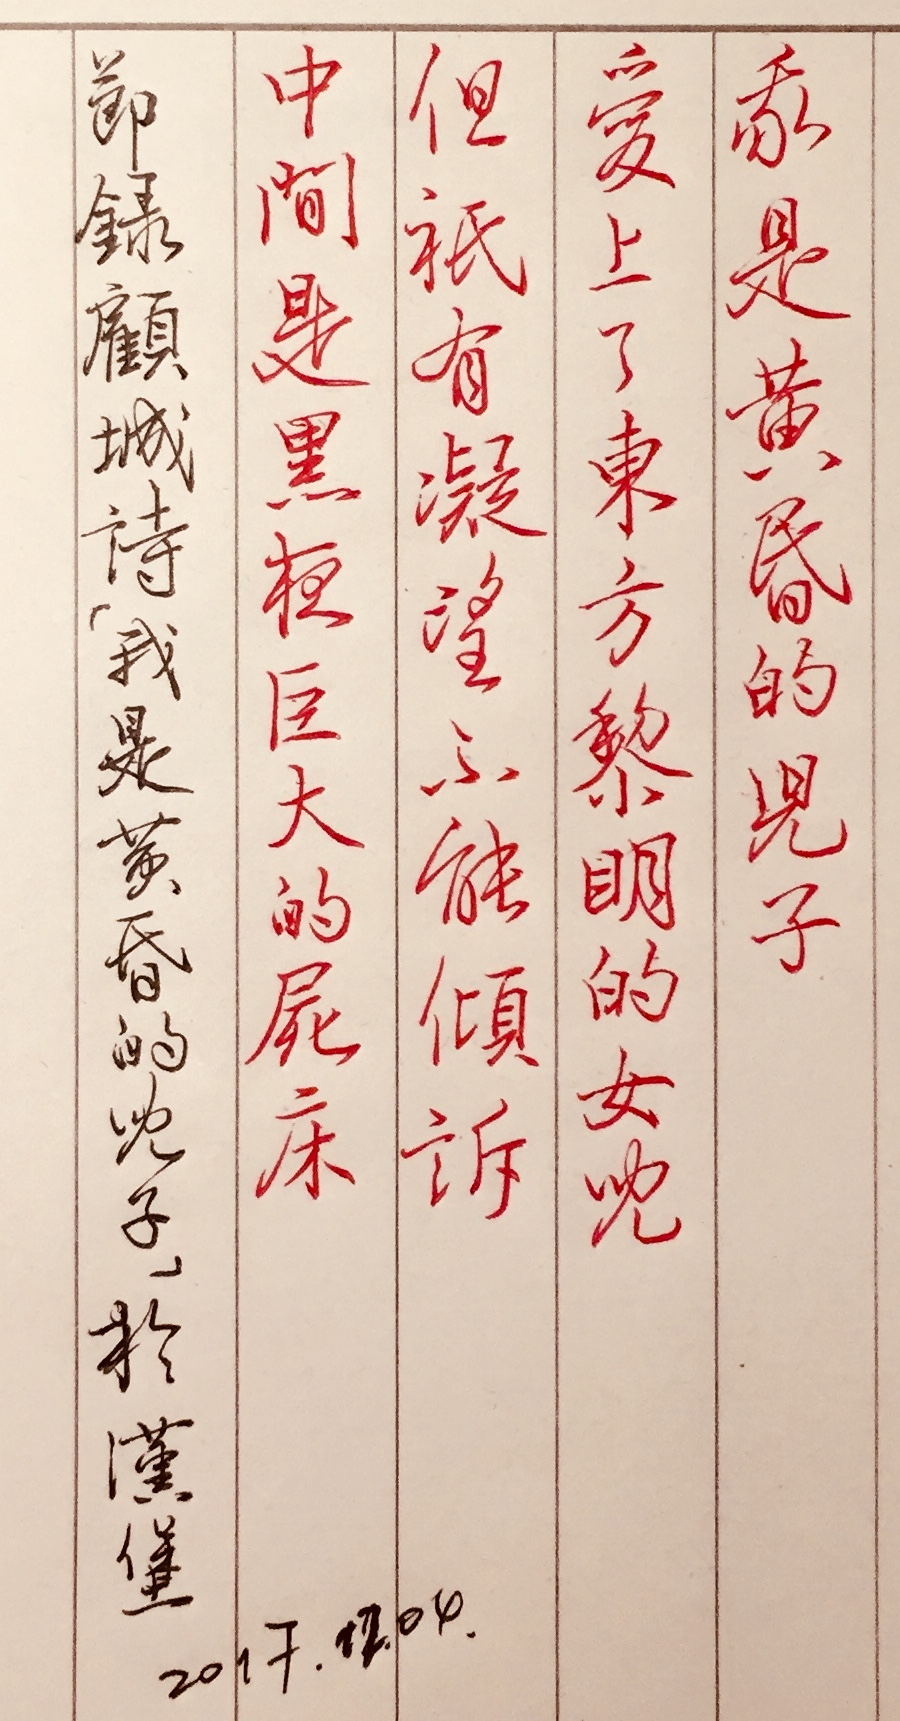 我是黄昏的兒子
愛上了東方黎明的女兒
但祇有凝望不能傾訴
中間是黑夜巨大的屍床
節錄顧城詩「我是黄昏的兒子」於漢堡
2017.12.04.